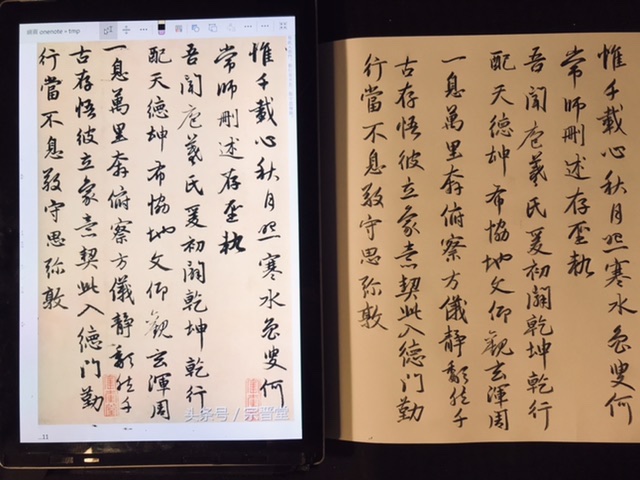 onenote » tmp
惟千載心秋月照寒水魯叟何
常師刪述存聖軌
吾聞庖羲氏爰初闢乾坤乾行
配天德坤布協地文仰觀玄渾周
一息萬里奔俯察方儀靜頹然千
古存悟彼立象意契此入德門勤
行當不息敬守思弥敦
头条号/宗晋堂
惟千載心秋月照寒水魯叟何
常師刪述存聖軌
吾聞庖羲氏爰初闢乾坤乾行
配天德坤布協地文仰觀玄渾周
一息萬里奔俯察方儀靜頹然千
古存悟彼立象意契此入德門勤
行當不息敬守思弥敦